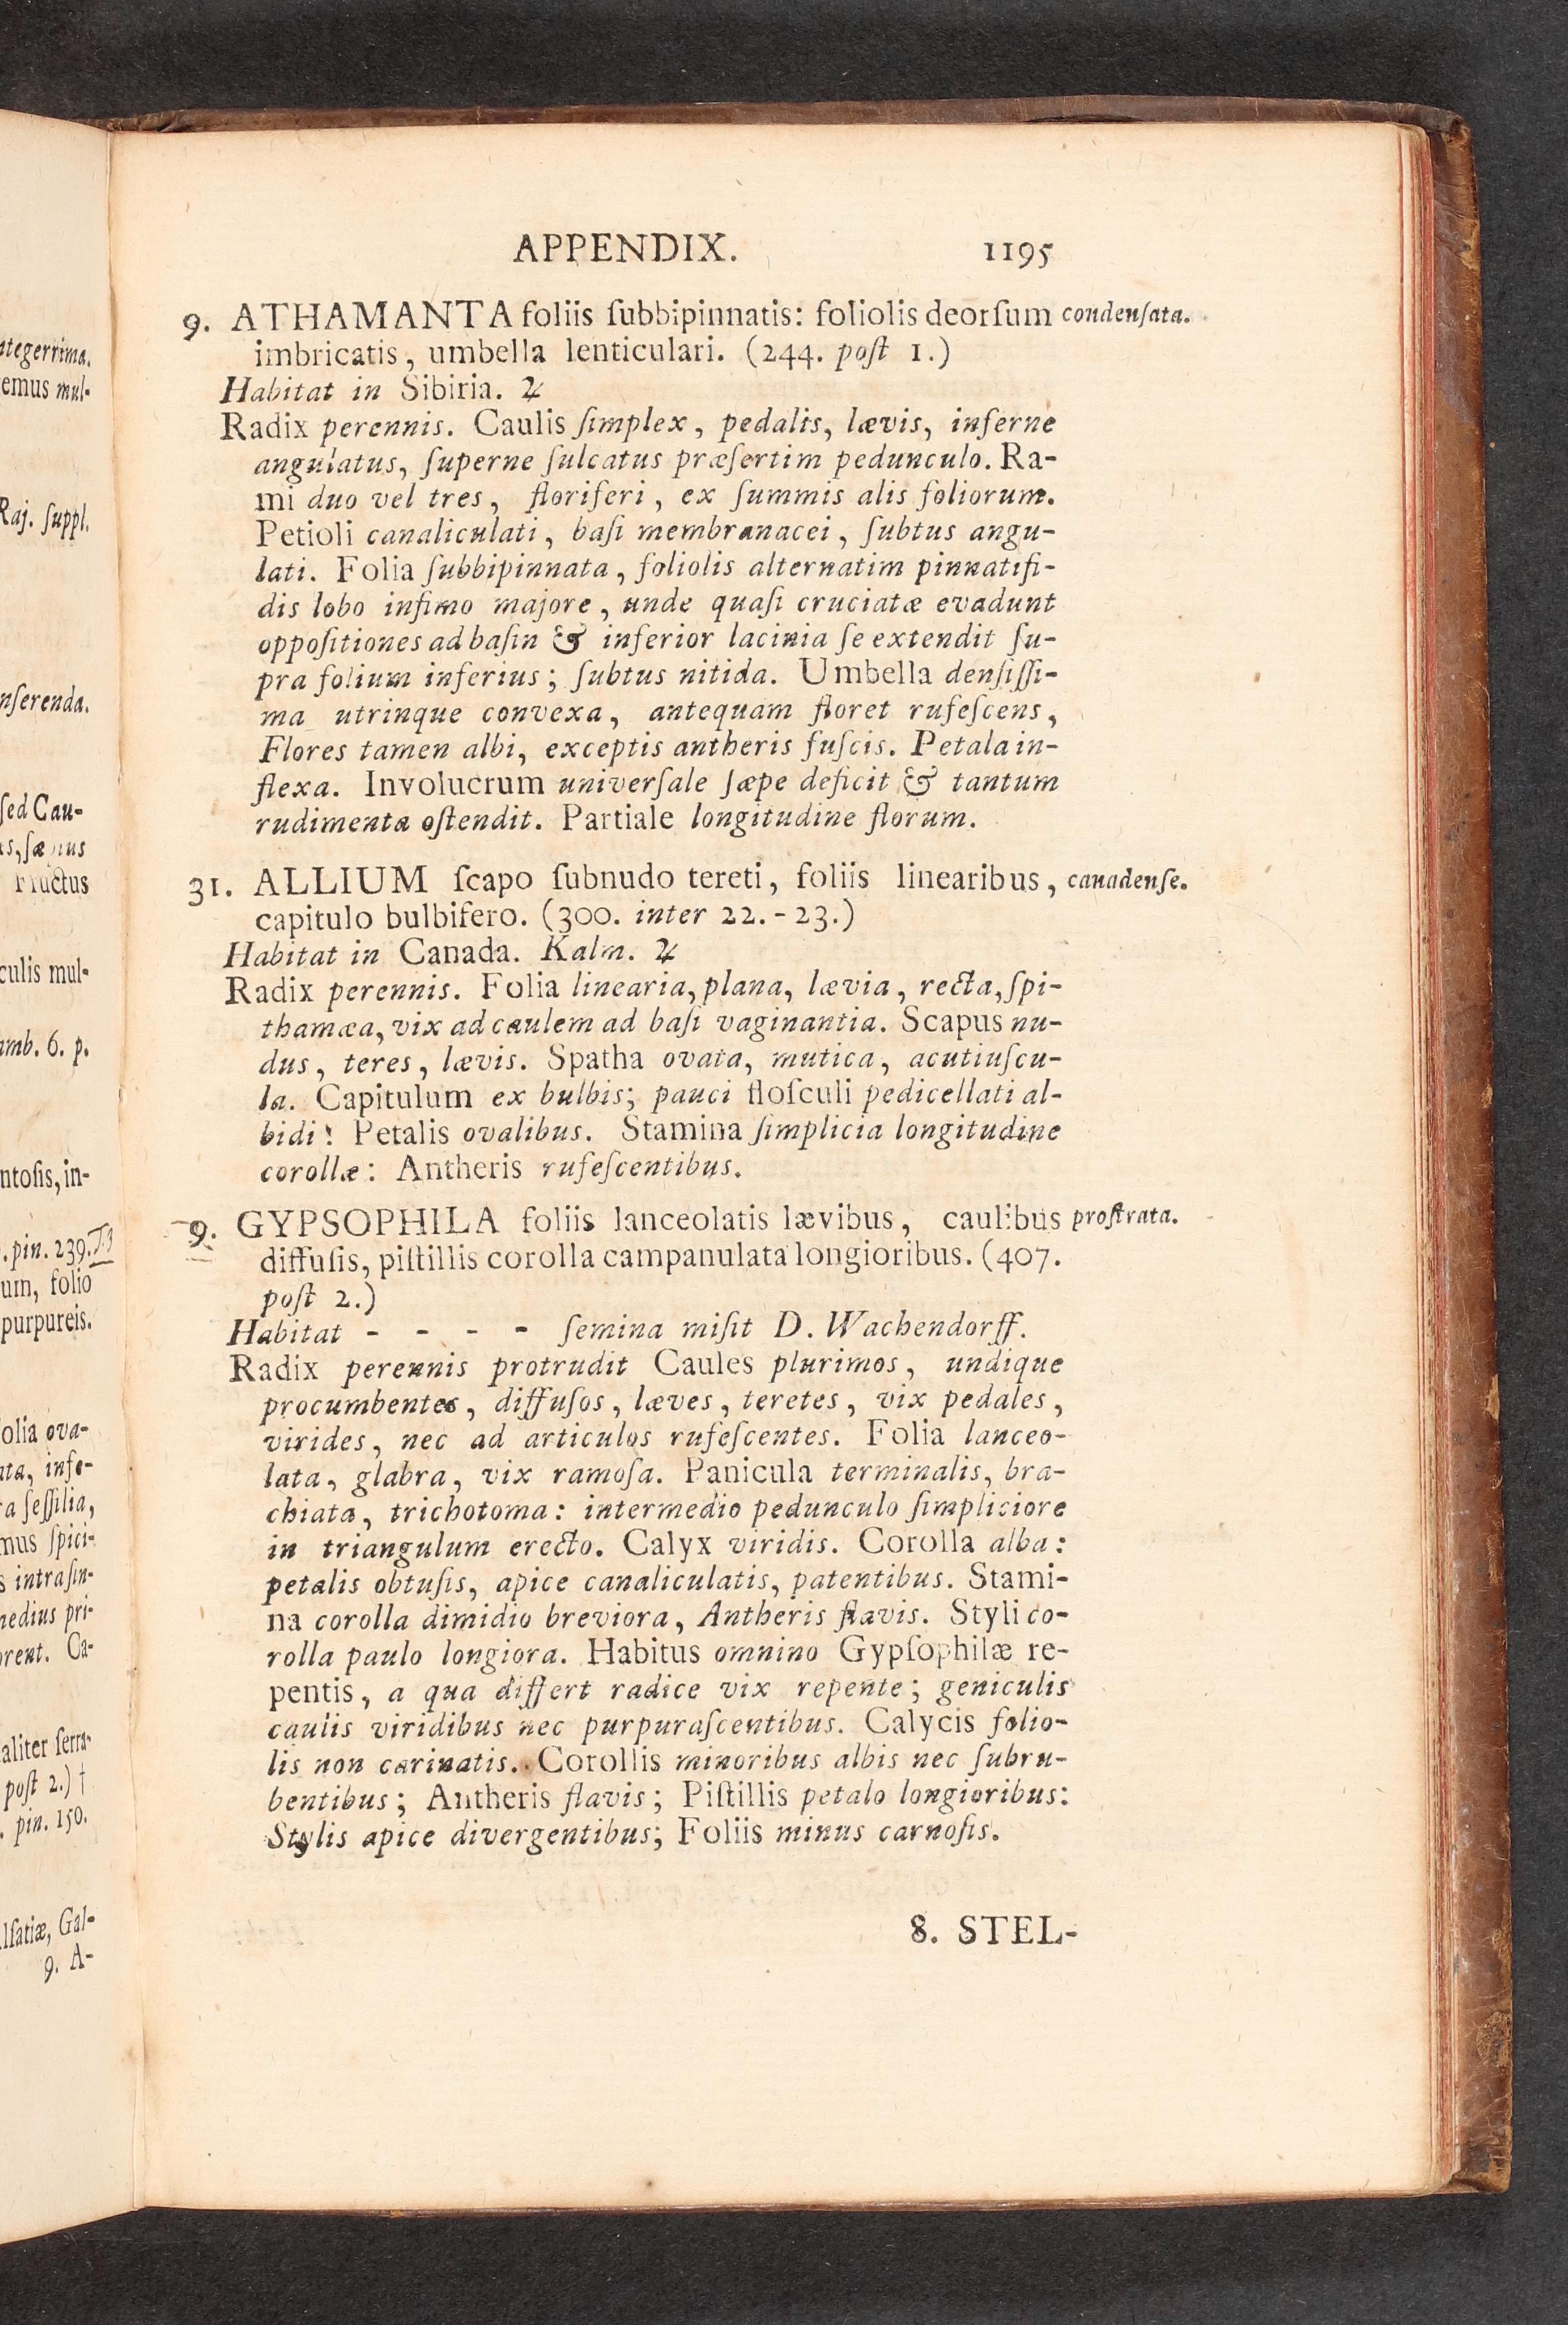 APPENDIX. 1195
9. ATHAMANTA foliis ſubbipinnatis: foliolis deorſum condenſata.
imbricatis, umbella lenticulari. (244. poſt 1.)
Habitat in Sibiria. ♃
Radix perennis. Caulis ſimplex, pedalis, lævis, inferne
angulatus, ſuperne ſulcatus præſertim pedunculo. Ra-
mi duo vel tres, floriferi, ex ſummis alis foliorum.
Petioli canaliculati, baſi membranacei, ſubtus angu-
lati. Folia ſubbipinnata, foliolis alternatim pinnatifi-
dis lobo infimo majore, unde quaſi cruciatæ evadunt
oppoſitiones ad baſin & inferior lacinia ſe extendit ſu-
pra folium inferius; ſubtus nitida. Umbella denſiſſi-
ma utrinque convexa, antequam floret rufeſcens,
Flores tamen albi, exceptis antheris fuſcis. Petala in-
flexa. Involucrum univerſale ſæpe deficit & tantum
rudimenta oſtendit. Partiale longitudine florum.
31. ALLIUM ſcapo ſubnudo tereti, foliis linearibus, canadenſe.
capitulo bulbifero. (300. inter 22.-23.)
Habitat in Canada. Kalm. ♃
Radix perennis. Folia linearia, plana, lævia, recta, ſpi-
thamæa, vix ad caulem ad baſi vaginantia. Scapus nu-
dus, teres, lævis. Spatha ovata, mutica, acutiuſcu-
la. Capitulum ex bulbis; pauci floſculi pedicellati al-
bidi: Petalis ovalibus. Stamina ſimplicia longitudine
corollæ: Antheris rufeſcentibus.
9. GYPSOPHILA foliis lanceolatis lævibus, caulibus proſtrata.
diffuſis, piſtillis corolla campanulata longioribus. (407.
poſt 2.)
Habitat - - - - ſemina miſit D. Wachendorff.
Radix perennis protrudit Caules plurimos, undique
procumbentes, diffuſos, læves, teretes, vix pedales,
virides, nec ad articulos rufeſcentes. Folia lanceo-
lata, glabra, vix ramoſa. Panicula terminalis, bra-
chiata, trichotoma: intermedio pedunculo ſimpliciore
in triangulum erecto. Calyx viridis. Corolla alba:
petalis obtuſis, apice canaliculatis, patentibus. Stami-
na corolla dimidio breviora, Antheris flavis. Styli co-
rolla paulo longiora. Habitus omnino Gypſophilæ re-
pentis, a qua differt radice vix repente; geniculis
caulis viridibus nec purpuraſcentibus. Calycis folio-
lis non carinatis. Corollis minoribus albis nec ſubru-
bentibus; Antheris flavis; Piſtillis petalo longioribus:
Stylis apice divergentibus; Foliis minus carnoſis.
8. STEL-
ntegerrima.
emus mul-
Raj. ſuppl.
nſerenda.
ſed Cau-
Fructus
culis mul-
amb. 6. p.
ntoſis, in-
. pin. 239.
um, folio
purpureis.
olia ova-
ata, infe-
ra ſeſſilia,
mus ſpici-
s intraſin-
medius pri-
orent. Ca-
aliter ſerra-
poſt 2.) †
. pin. 150.
lſatiæ, Gal-
9. A-